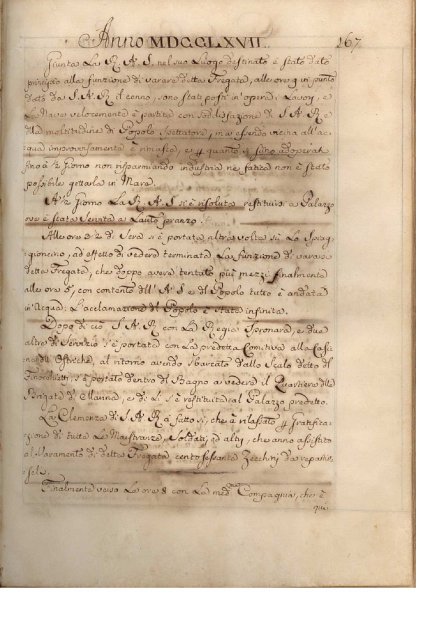 Anno MDCCLXVII. 267
Giunta La R. A. S. nel suo Luogo destinato è stato dato
principio alla funzione di varare detta Fregata, alle ore 9 in punto
dato da S. A. R. il cenno, sono stati posti in opera i Lavori, e
La Nave velocemente è partita con sodisfazione di S. A. R. e
della moltitudine di Popolo spettatore, ma essendo vicina all'ac-
qua improvisamente è rimasta, e quanto si sono adoperati
fino a ½ Giorno non risparmiando industria ne fatica non è stato
possibile gettarla in Mare.
A ½ Giorno La R. A. S. si è risoluta restituirsi a Palazzo
ove è stata servita a Lauto pranzo.
Alle ore di Sera si è portata altra volta su La Spiag-
gioncino, ad effetto di vedere terminata La funzione di varare
detta Fregata, che doppo avere tentato più mezzi finalmente
alle ore 6, con contento dell'A. S. e del Popolo tutto è andata
in Acqua; L'acclamazione del Popolo è stata infinita.
Dopo di ciò S. A. R. con La Regia Speronara, e due
altre di Servizio si è portata con La predetta Comitiva alla Casi-
na dell'Ostriche, al ritorno avendo sbarcato dallo Scalo detto di
Finocchietti, si è portato dentro il Bagno a vedere il Quartiere delle
Brigate di Marina, e di Lì si è restituita al Palazzo predetto.
La Clemenza di S. A. R. à fatto sì, che à rilassato gratifica-
zione di tutte Le Maestranze, Soldati, ed altri, che anno assistito
al Varamento di detta Fregata cento sessanta Zecchini da repartir-
seli.
Finalmente verso La ore 8 con La med.ma Compagnia, che è
que